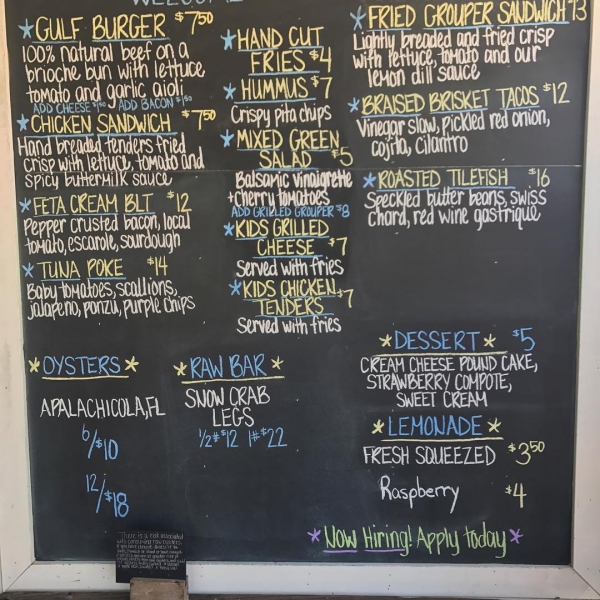 WELCOME
*GULF BURGER $7.50
100% natural beef on a
brioche bun with lettuce
tomato and garlic aioli
ADD CHEESE $1.50 ADD BACON $1.50
*CHICKEN SANDWICH $7.50
Hand breaded tenders fried
crisp with lettuce, tomato and
spicy buttermilk sauce
*FETA CREAM BLT $12
Pepper crusted bacon, local
tomato, escarole, sourdough
*TUNA POKE $14
Baby tomatoes, scallions,
jalapeno, ponzu, purple chips
*HAND CUT
FRIES $4
*HUMMUS $7
Crispy pita chips
*MIXED GREEN
SALAD $5
Balsamic vinaigrette
+cherry tomatoes
ADD GRILLED GROUPER $8
*KIDS GRILLED
CHEESE $7
Served with fries
*KIDS CHICKEN
TENDERS $7
Served with fries
*FRIED GROUPER SANDWICH $13
Lightly breaded and fried crisp
with lettuce, tomato and our
lemon dill sauce
*BRAISED BRISKET TACOS $12
Vinegar slaw, pickled red onion,
cojita, cilantro
*ROASTED TILEFISH $16
Speckled butter beans, swiss
chard, red wine gastrique
*OYSTERS*
APALACHICOLA, FL
6/$10
12/$18
*RAW BAR*
SNOW CRAB
LEGS
1/2# $12 1# $22
*DESSERT* $5
CREAM CHEESE POUND CAKE,
STRAWBERRY COMPOTE,
SWEET CREAM
*LEMONADE*
FRESH SQUEEZED $3.50
Raspberry $4
*Now Hiring! Apply today*
There is a risk associated
with consuming raw oysters.